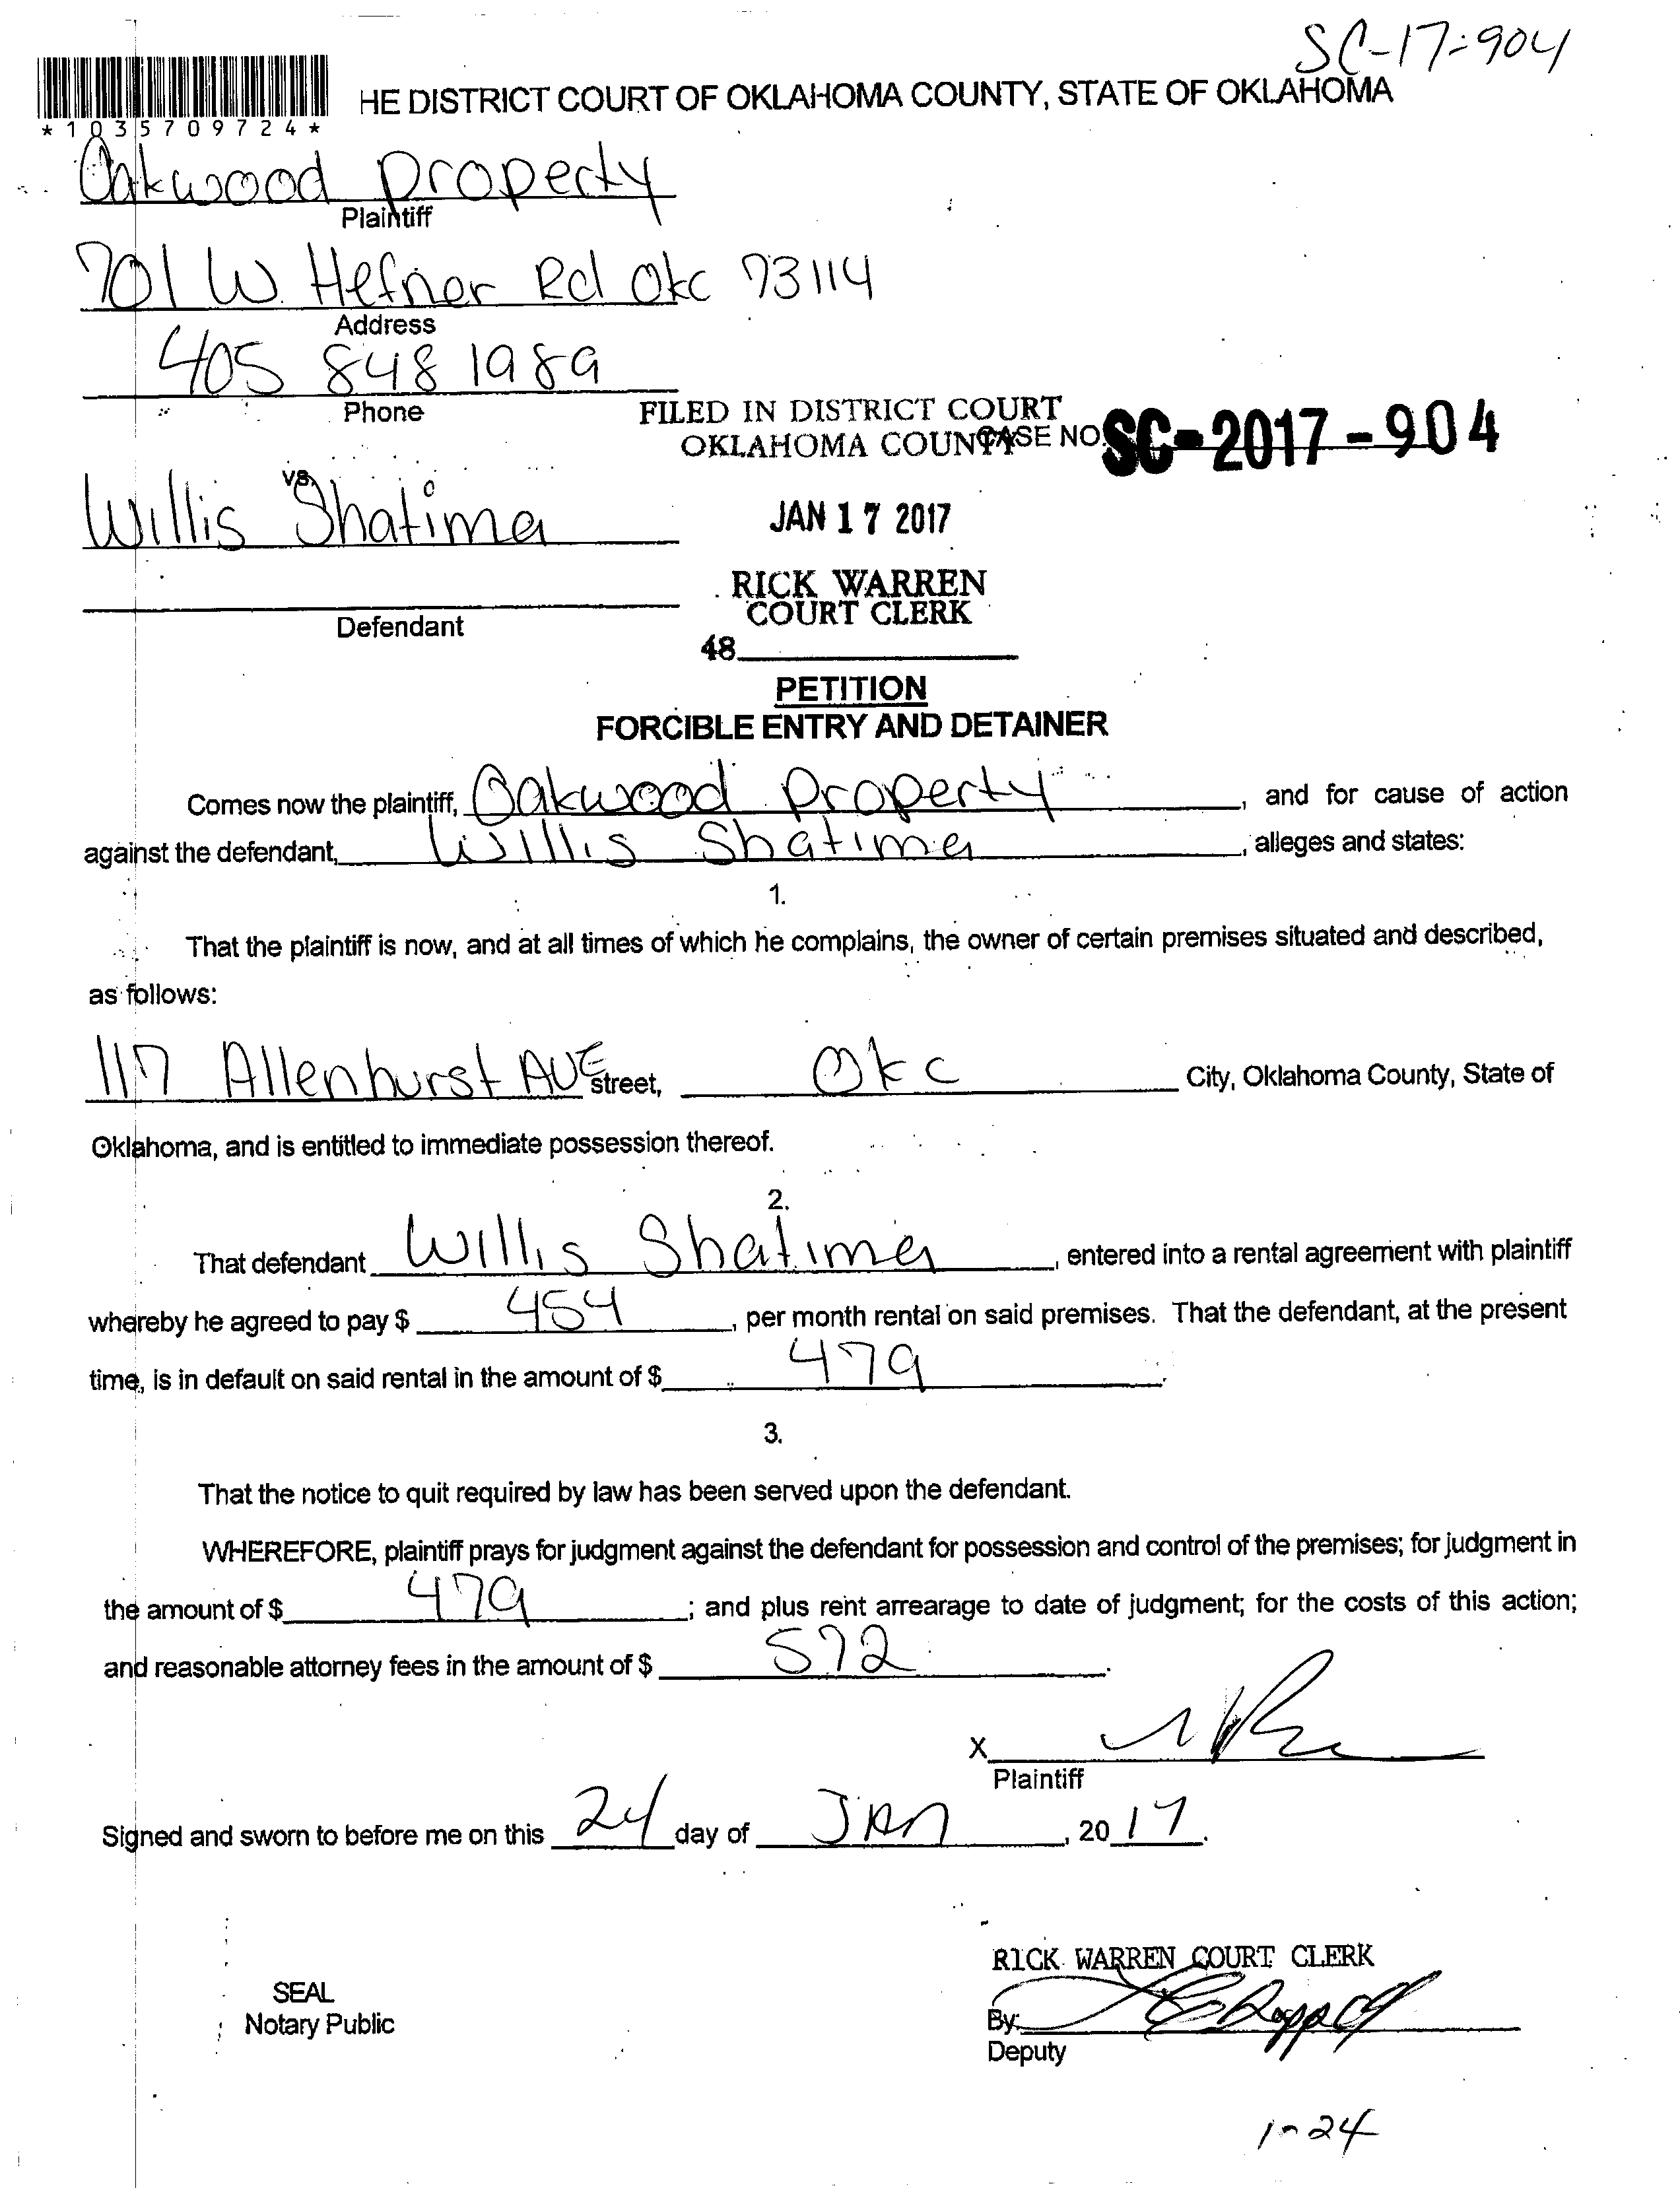 SC-17-904
HE DISTRICT COURT OF OKLAHOMA COUNTY, STATE OF OKLAHOMA
*1035709724*
Oakwood Property
Plaintiff
701 W. Hefner Rd Okc 73114
Address
405 848 1989
Phone
FILED IN DISTRICT COURT
OKLAHOMA COUNTY CASE NO. SC-2017-904
vs.
Willis Shatima
JAN 17 2017
RICK WARREN
COURT CLERK
Defendant
48
PETITION
FORCIBLE ENTRY AND DETAINER
Comes now the plaintiff, Oakwood Property, and for cause of action
against the defendant, Willis Shatima, alleges and states:
1.
That the plaintiff is now, and at all times of which he complains, the owner of certain premises situated and described,
as follows:
117 Allenhurst AVE street, Okc City, Oklahoma County, State of
Oklahoma, and is entitled to immediate possession thereof.
2.
That defendant Willis Shatima, entered into a rental agreement with plaintiff
whereby he agreed to pay $ 454, per month rental on said premises. That the defendant, at the present
time, is in default on said rental in the amount of $ 479.
3.
That the notice to quit required by law has been served upon the defendant.
WHEREFORE, plaintiff prays for judgment against the defendant for possession and control of the premises; for judgment in
the amount of $ 479; and plus rent arrearage to date of judgment; for the costs of this action;
and reasonable attorney fees in the amount of $ 572.
X
Plaintiff
Signed and sworn to before me on this 24 day of JAN, 2017.
RICK WARREN COURT CLERK
SEAL
Notary Public
By:
Deputy
1-24